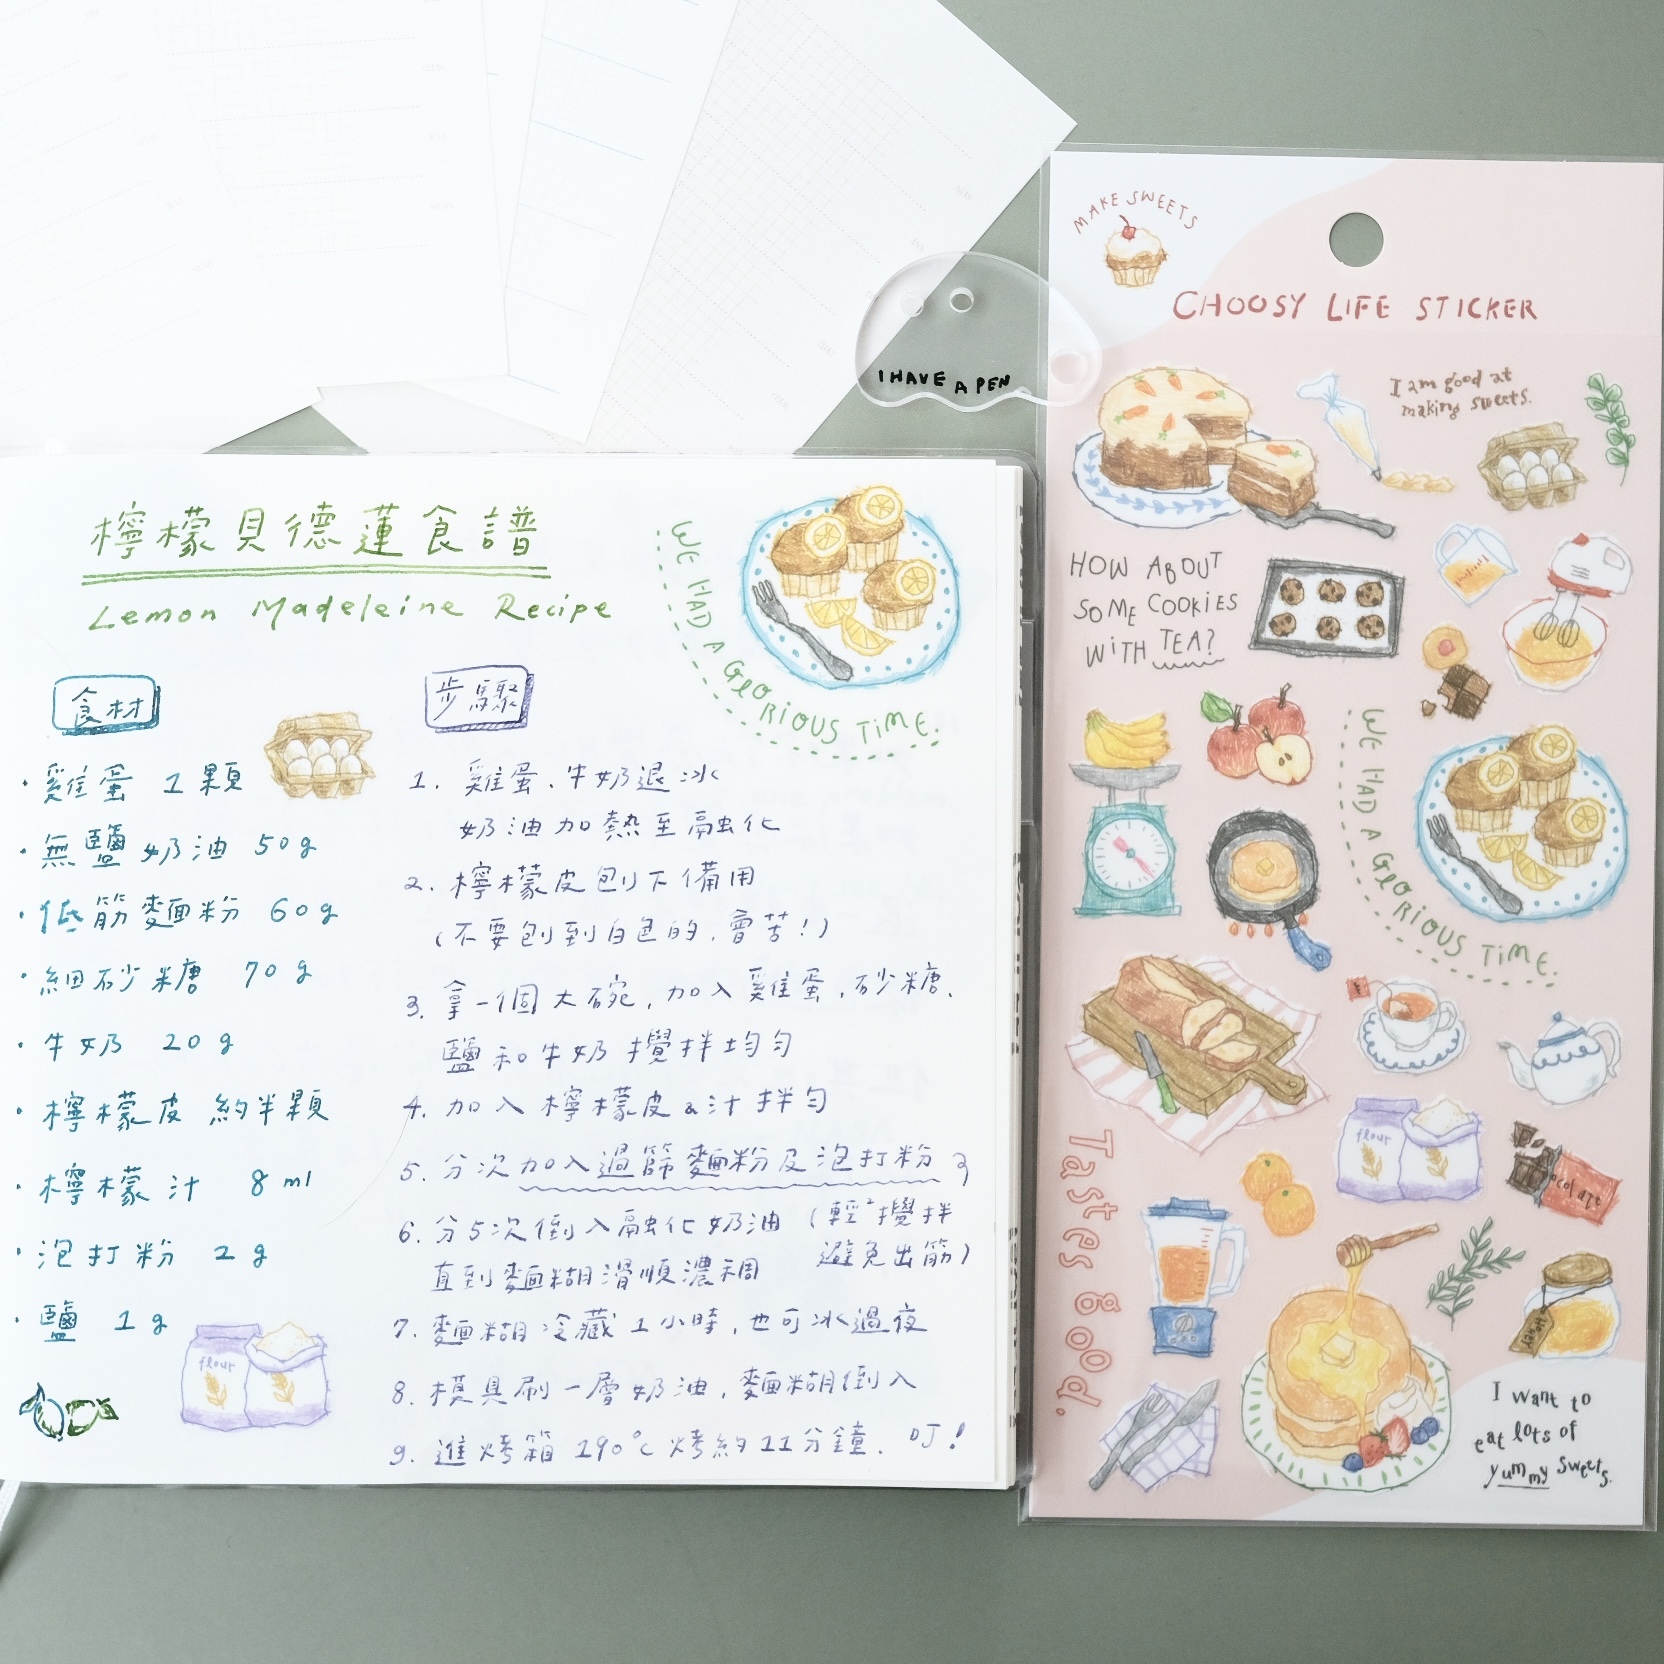 檸檬貝德蓮食譜
Lemon Madeleine Recipe
WE HAD A GLORIOUS TIME.
食材
・雞蛋 1顆
・無鹽奶油 50g
・低筋麵粉 60g
・細砂糖 70g
・牛奶 20g
・檸檬皮 約半顆
・檸檬汁 8ml
・泡打粉 2g
・鹽 1g
flour
步驟
1. 雞蛋、牛奶退冰
奶油加熱至融化
2. 檸檬皮刨下備用
(不要刨到白色的,會苦!)
3. 拿一個大碗,加入雞蛋,砂糖、
鹽和牛奶攪拌均勻
4. 加入檸檬皮&汁拌勻
5. 分次加入過篩麵粉及泡打粉
6. 分5次倒入融化奶油
直到麵糊滑順濃稠
(輕²攪拌
避免出筋)
7. 麵糊冷藏1小時,也可冰過夜
8. 模具刷一層奶油,麵糊倒入
9. 進烤箱190°c烤約11分鐘、叮!
I HAVE A PEN
MAKE SWEETS
CHOOSY LIFE STICKER
I am good at
making sweets.
HOW ABOUT
SOME COOKIES
WITH TEA?
WE HAD A GLORIOUS TIME.
flour
chocolate
Tastes good.
HONEY
I want to
eat lots of
yummy sweets.